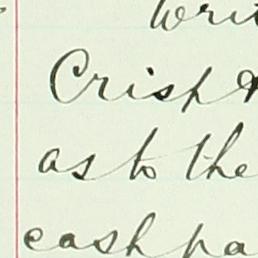 Writ
Crisp &
as to the
cash pa